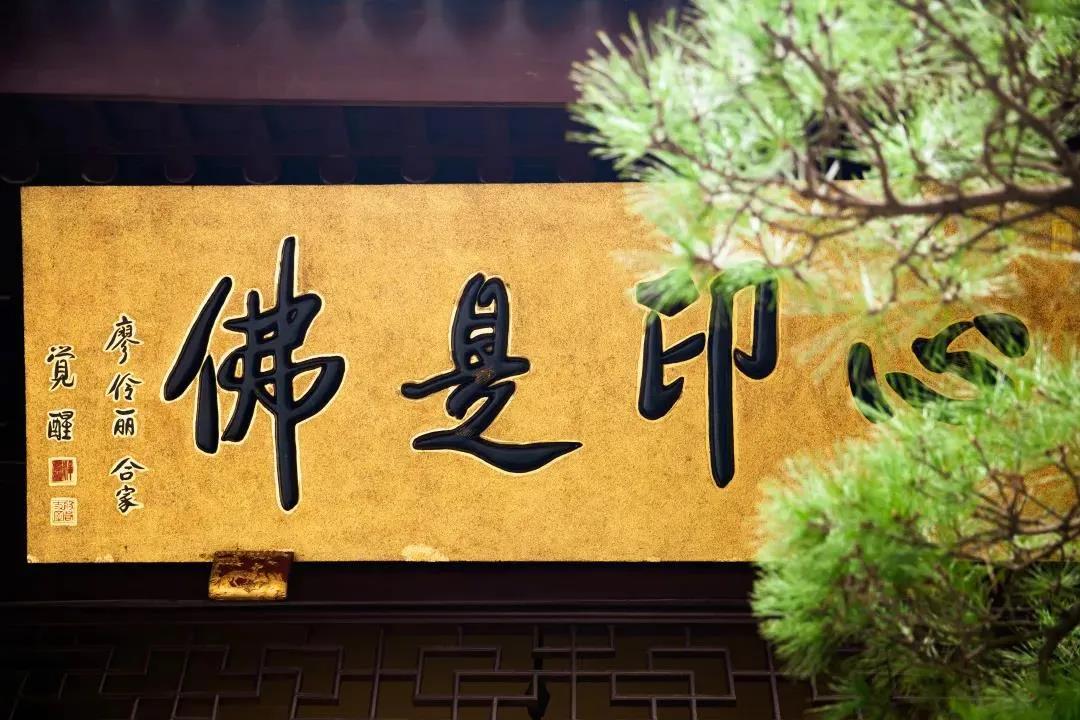 心印是佛
廖伶丽合家
覚醒